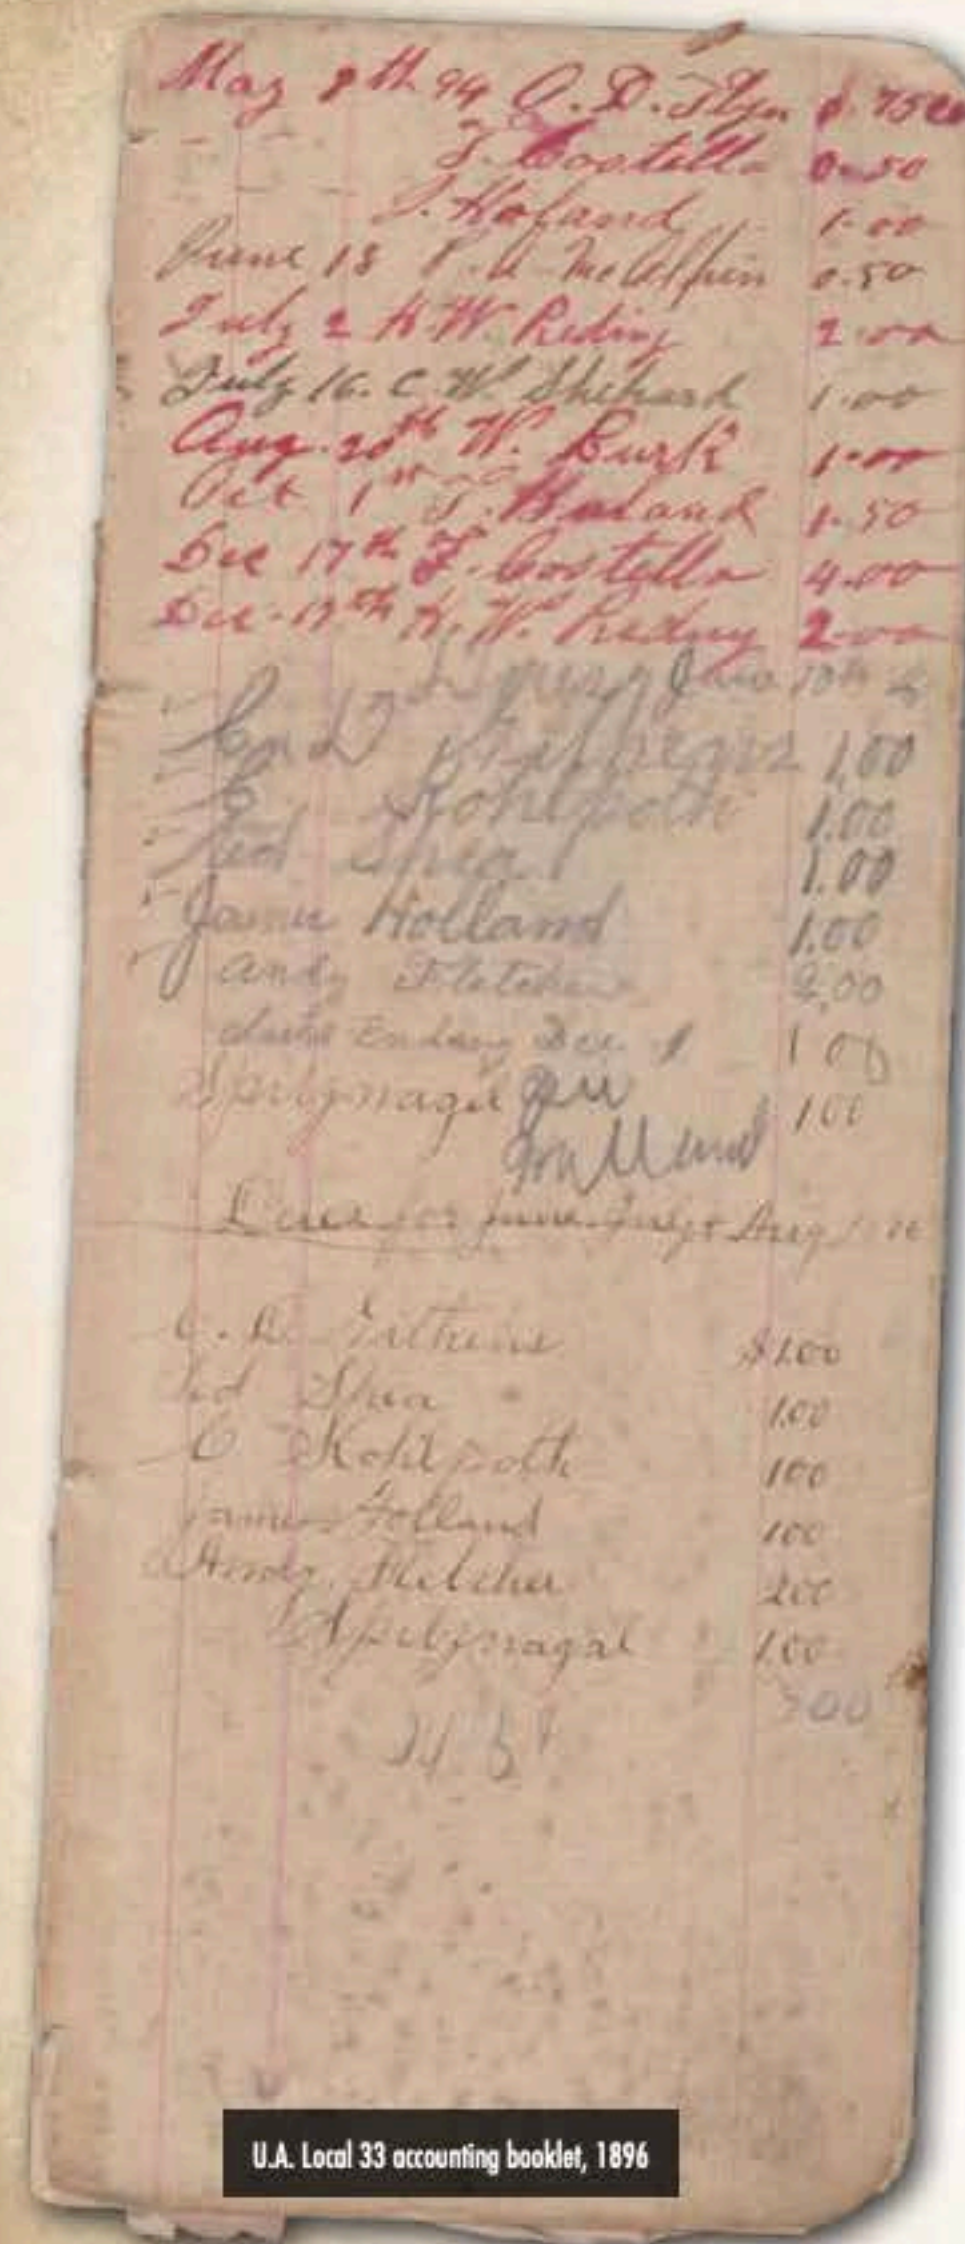 May 8th 94 O. D. Flyn $.75
T. Costello 0.50
J. Holand 1.00
June 18 P. A. McAlpin 0.50
July 2 H. W. Reding 2.00
July 16. C. W. Shehard 1.00
Aug. 20th W. Burk 1.00
Oct 1st J. Holand 1.50
Dec 17th T. Costello 4.00
Dec. 17th H. W. Reding 2.00
June 10th
1.00
C Kohlpoth 1.00
Ted Shea 1.00
James Holland 1.00
Andy Fletcher 2.00
dues Ending Dec. 1 1 00
Spitznagel 1.00
Dues for June July & Aug
C. D. $1.00
Ted Shea 1.00
C Kohlpoth 100
James Holland 100
Andy Fletcher 200
Spitznagal 1.00
700
U.A. Local 33 accounting booklet, 1896